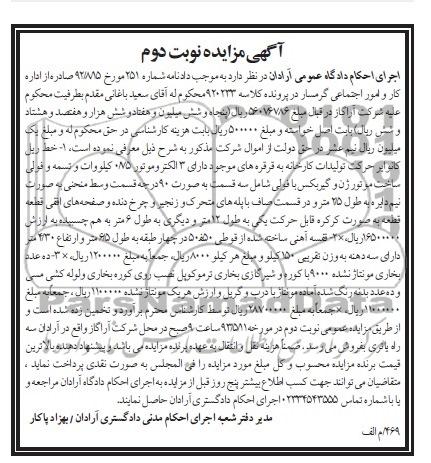 آگهی مزایده نوبت دوم
اجرای احکام دادگاه عمومی آرادان در نظر دارد به موجب دادنامه شماره ۲۵۱ مورخ ۹۲/۸/۱۵ صادره از اداره
کار و امور اجتماعی گرمسار در پرونده کلاسه ۹۲۰۲۳۳ محکوم له آقای سعید باغانی مقدم بطرفیت محکوم
علیه شرکت آراگاز در قبال مبلغ ۵۶۰۷۶۷۸۶ ریال (پنجاه و شش میلیون و هفتاد و شش هزار و هفتصد و هشتاد
و شش ریال) بابت اصل خواسته و مبلغ ۵۰۰۰۰۰ ریال بابت هزینه کارشناسی در حق محکوم له و مبلغ یک
میلیون ریال نیم عشر در حق دولت از اموال شرکت مذکور به شرح ذیل معرفی نموده است، ۱- خط ریل
کانوایر حرکت تولیدات کارخانه به قرقره های موجود دارای ۳ الکتروموتور ۰/۸۵ کیلووات و تسمه و فولی
ساخت موتور ژن و گیربکس با فولی شامل سه قسمت به صورت ۹۰ درجه قسمت وسط منحنی به صورت
نیم دایره به طول ۲۵ متر و در قسمت صاف با پله های متحرک و زنجیر و چرخ دنده و صفحه های افقی قطعه
قطعه به صورت کرکره قابل حرکت یکی به طول ۱۲ متر و دیگری به طول ۶ متر به هم چسبیده به ارزش
۱۶۵۰۰۰۰۰ ریال، ×۲- قفسه آهنی ساخته شده از قوطی ۵۰×۵۰ در چهار طبقه به طول ۶/۵ متر و ارتفاع ۴/۳۰ متر
دارای سه دهنه به وزن تقریبی ۱۵۰ کیلو و مبلغ هر کیلو ۸۰۰۰ ریال، جمعا به مبلغ ۱۲۰۰۰۰۰ ریال، ×۳- ده عدد
بخاری مونتاژ نشده ۹۰۰۰ با کوره و شیر گازی بخاری ترموکوپل نصب روی کوره بخاری و لوله کشی مسی
و ده عدد بدنه رنگ شده آماده مونتاژ با درب و گریل و ارزش هر یک مونتاژ نشده ۱۱۰۰۰۰۰ ریال، جمعا به مبلغ
۱۱۰۰۰۰۰۰ ریال، × جمعا به مبلغ ۲۸۷۰۰۰۰۰ ریال توسط کارشناس محترم برآورد و تخمین زده شده است و
از طریق مزایده عمومی نوبت دوم در مورخه ۹۳/۵/۱۱ ساعت ۹ صبح در محل شرکت آراگاز واقع در آرادان سه
راه یاتری بفروش می رسد. ضمنا هزینه نقل و انتقال به عهده برنده مزایده می باشد و پیشنهاد دهنده بالاترین
قیمت برنده مزایده محسوب و کل مبلغ مورد مزایده را فی المجلس به صورت نقدی پرداخت نماید ،
متقاضیان می توانند جهت کسب اطلاع بیشتر پنج روز قبل از مزایده به اجرای احکام دادگاه آرادان مراجعه و
یا با شماره تماس ۰۲۳۳۴۵۴۳۵۵۵ اجرای احکام دادگستری آرادان حاصل نمایند.
مدیر دفتر شعبه اجرای احکام مدنی دادگستری آرادان / بهزاد پاکار
۴۶۹/م الف